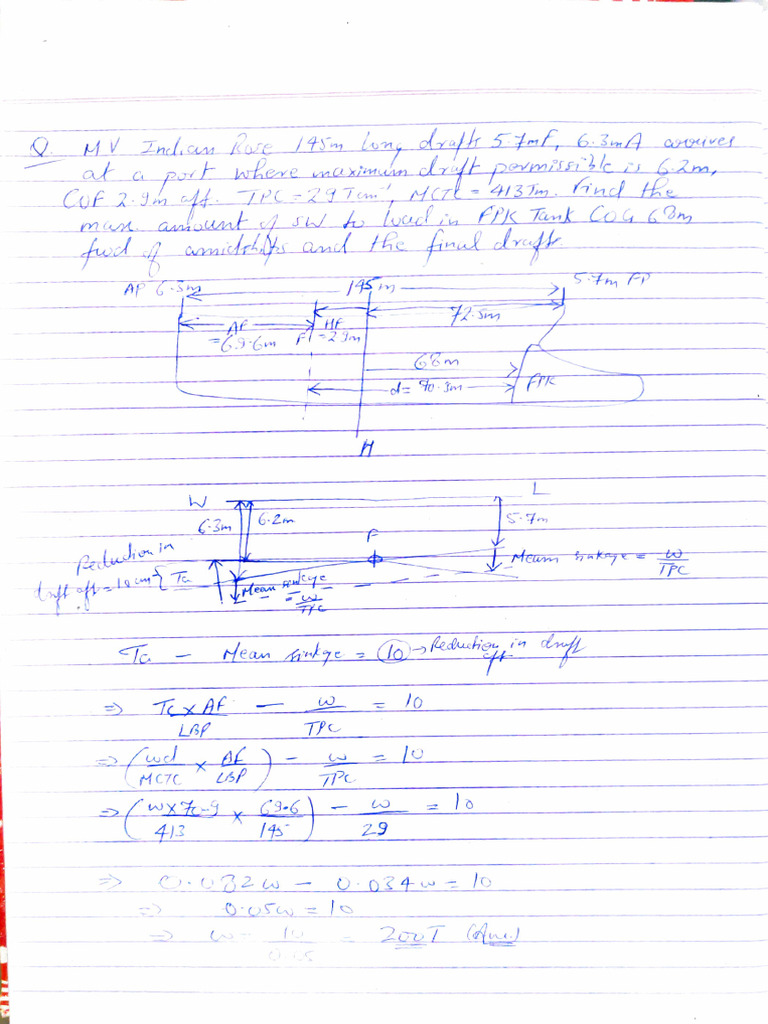 Q. MV Indian Rose 145m Long drafts 5.7mF, 6.3mA arrives
at a port where maximum draft permissible is 6.2m,
COF 2.9m aft. TPC = 29Tcm⁻¹, MCTC = 413Tm. Find the
max. amount of SW to load in FPK Tank COG 68m
fwd of amidships and the final draft.
AP 6.3m 145m 5.7m FP
AF = 69.6m F HF = 2.9m 72.5m
68m
d = 70.9m FPK
H
W L
6.3m 6.2m F 5.7m
Reduction in draft aft = 10cm { Ta Mean sinkage = w/TPC Mean sinkage = w/TPC
Ta - Mean sinkge = 10 → Reduction in draft aft
⇒ Tc x AF/LBP - w/TPC = 10
⇒ (wd/MCTC x AF/LBP) - w/TPC = 10
⇒ (w x 70.9/413 x 69.6/145) - w/29 = 10
⇒ 0.082w - 0.034w = 10
⇒ 0.05w = 10
⇒ w = 10/0.05 = 200T (Ans.)